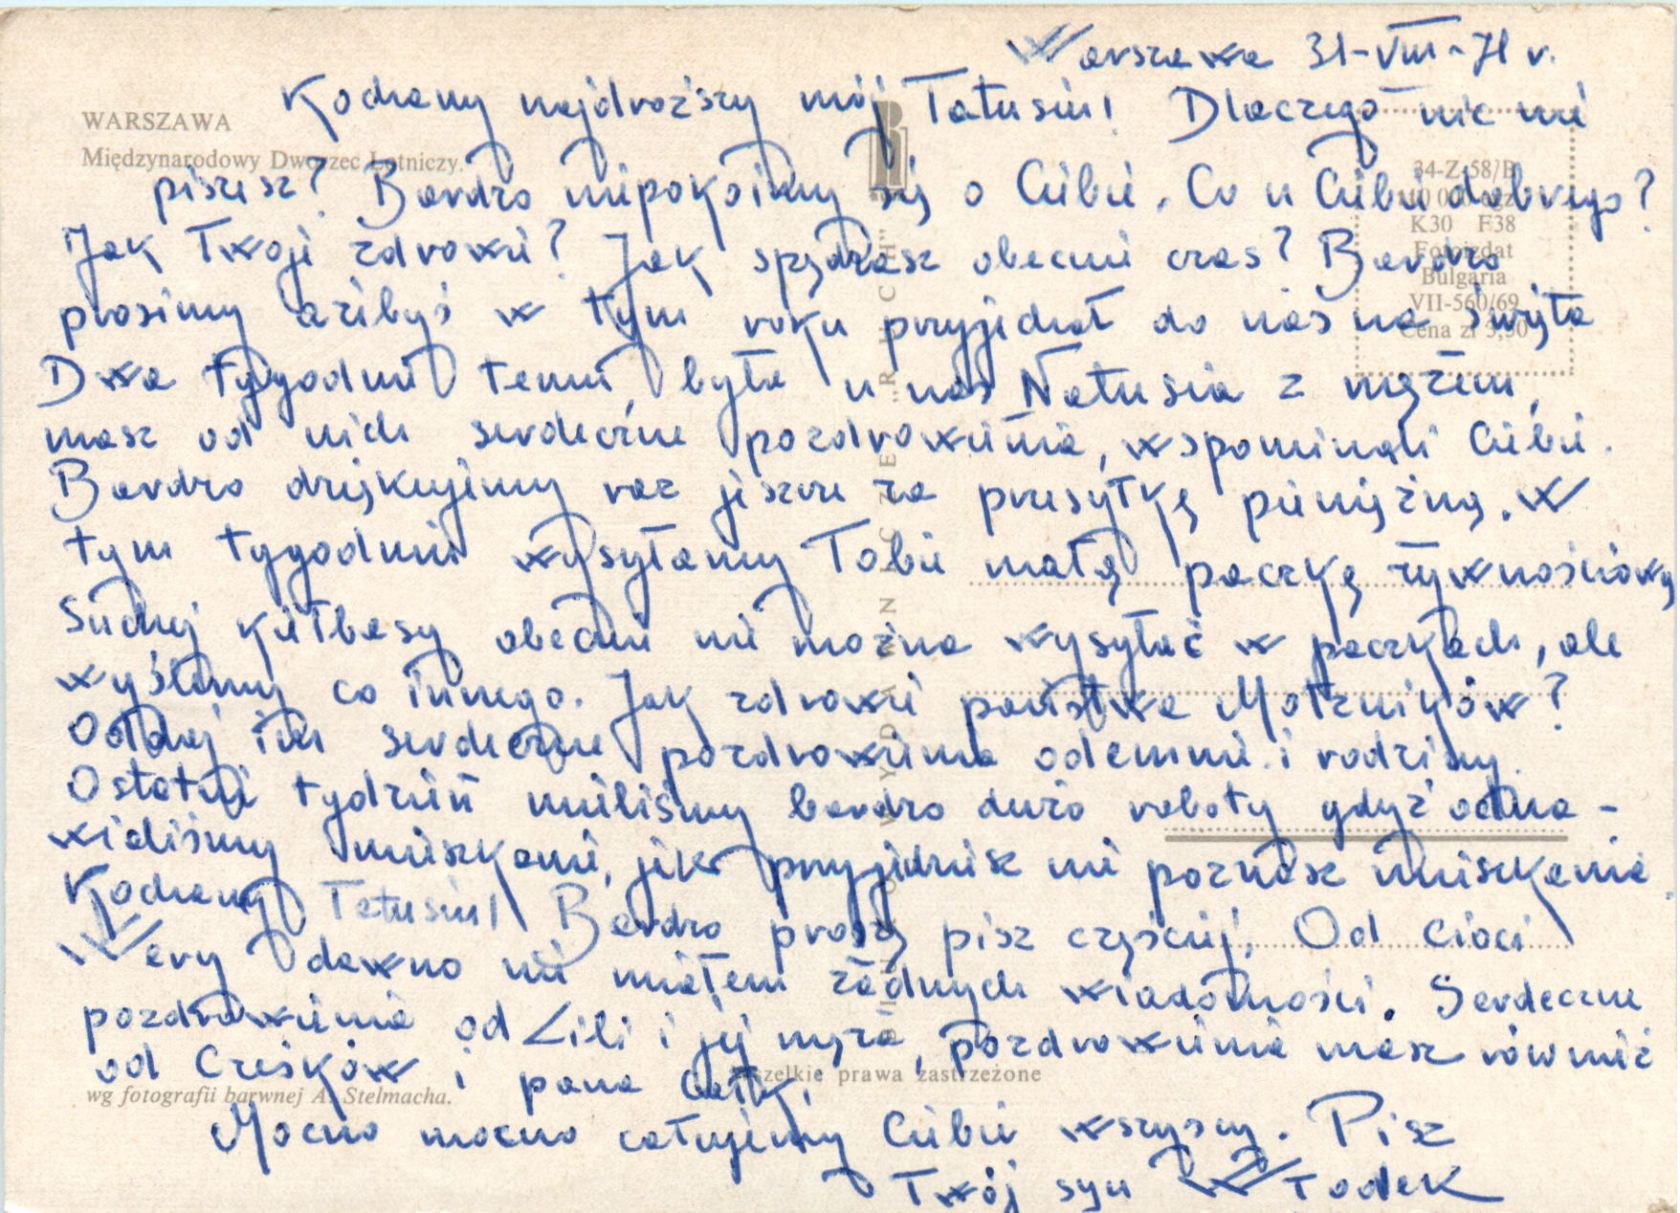 Warszawa 31-VIII-71 r.
Kochany najdroższy mój Tatusiu! Dlaczego nic nie
WARSZAWA
Międzynarodowy Dworzec Lotniczy.
piszesz? Bardzo niepokoimy się o Ciebie. Co u Ciebie dobrego?
34-Z-58/B
K30 F38
Fotoizdat
Bulgaria
VII-560/69
Cena zł 3,50
Jak Twoje zdrowie? Jak spędzasz obecnie czas? Bardzo
prosimy ażebyś w tym roku przyjechał do nas na święta
Dwa tygodnie temu była u nas Natusia z mężem,
masz od nich serdeczne pozdrowienia, wspominali Ciebie.
Bardzo dziękujemy raz jeszcze za przesyłkę pieniężną. W
tym tygodniu wysyłamy Tobie małą paczkę żywnościową
Suchej kiełbasy obecnie nie można wysyłać w paczkach, ale
wyślemy co innego. Jak zdrowie państwa Motrników?
Oddaj im serdeczne pozdrowienia odemnie i rodziny.
Ostatni tydzień mieliśmy bardzo dużo roboty gdyż odna-
wialiśmy mieszkanie, jak przyjedziesz nie poznasz mieszkania.
Kochany Tatusiu! Bardzo proszę pisz częściej. Od cioci
Wery dawno nie miałem żadnych wiadomości. Serdeczne
pozdrowienia od Lili i jej męża, pozdrowienia masz również
od Cześków i pana
wg fotografii barwnej A. Stelmacha.
Wszelkie prawa zastrzeżone
Mocno mocno całujemy Ciebie wszyscy. Pisz
Twój syn Włodek
"RUCH"